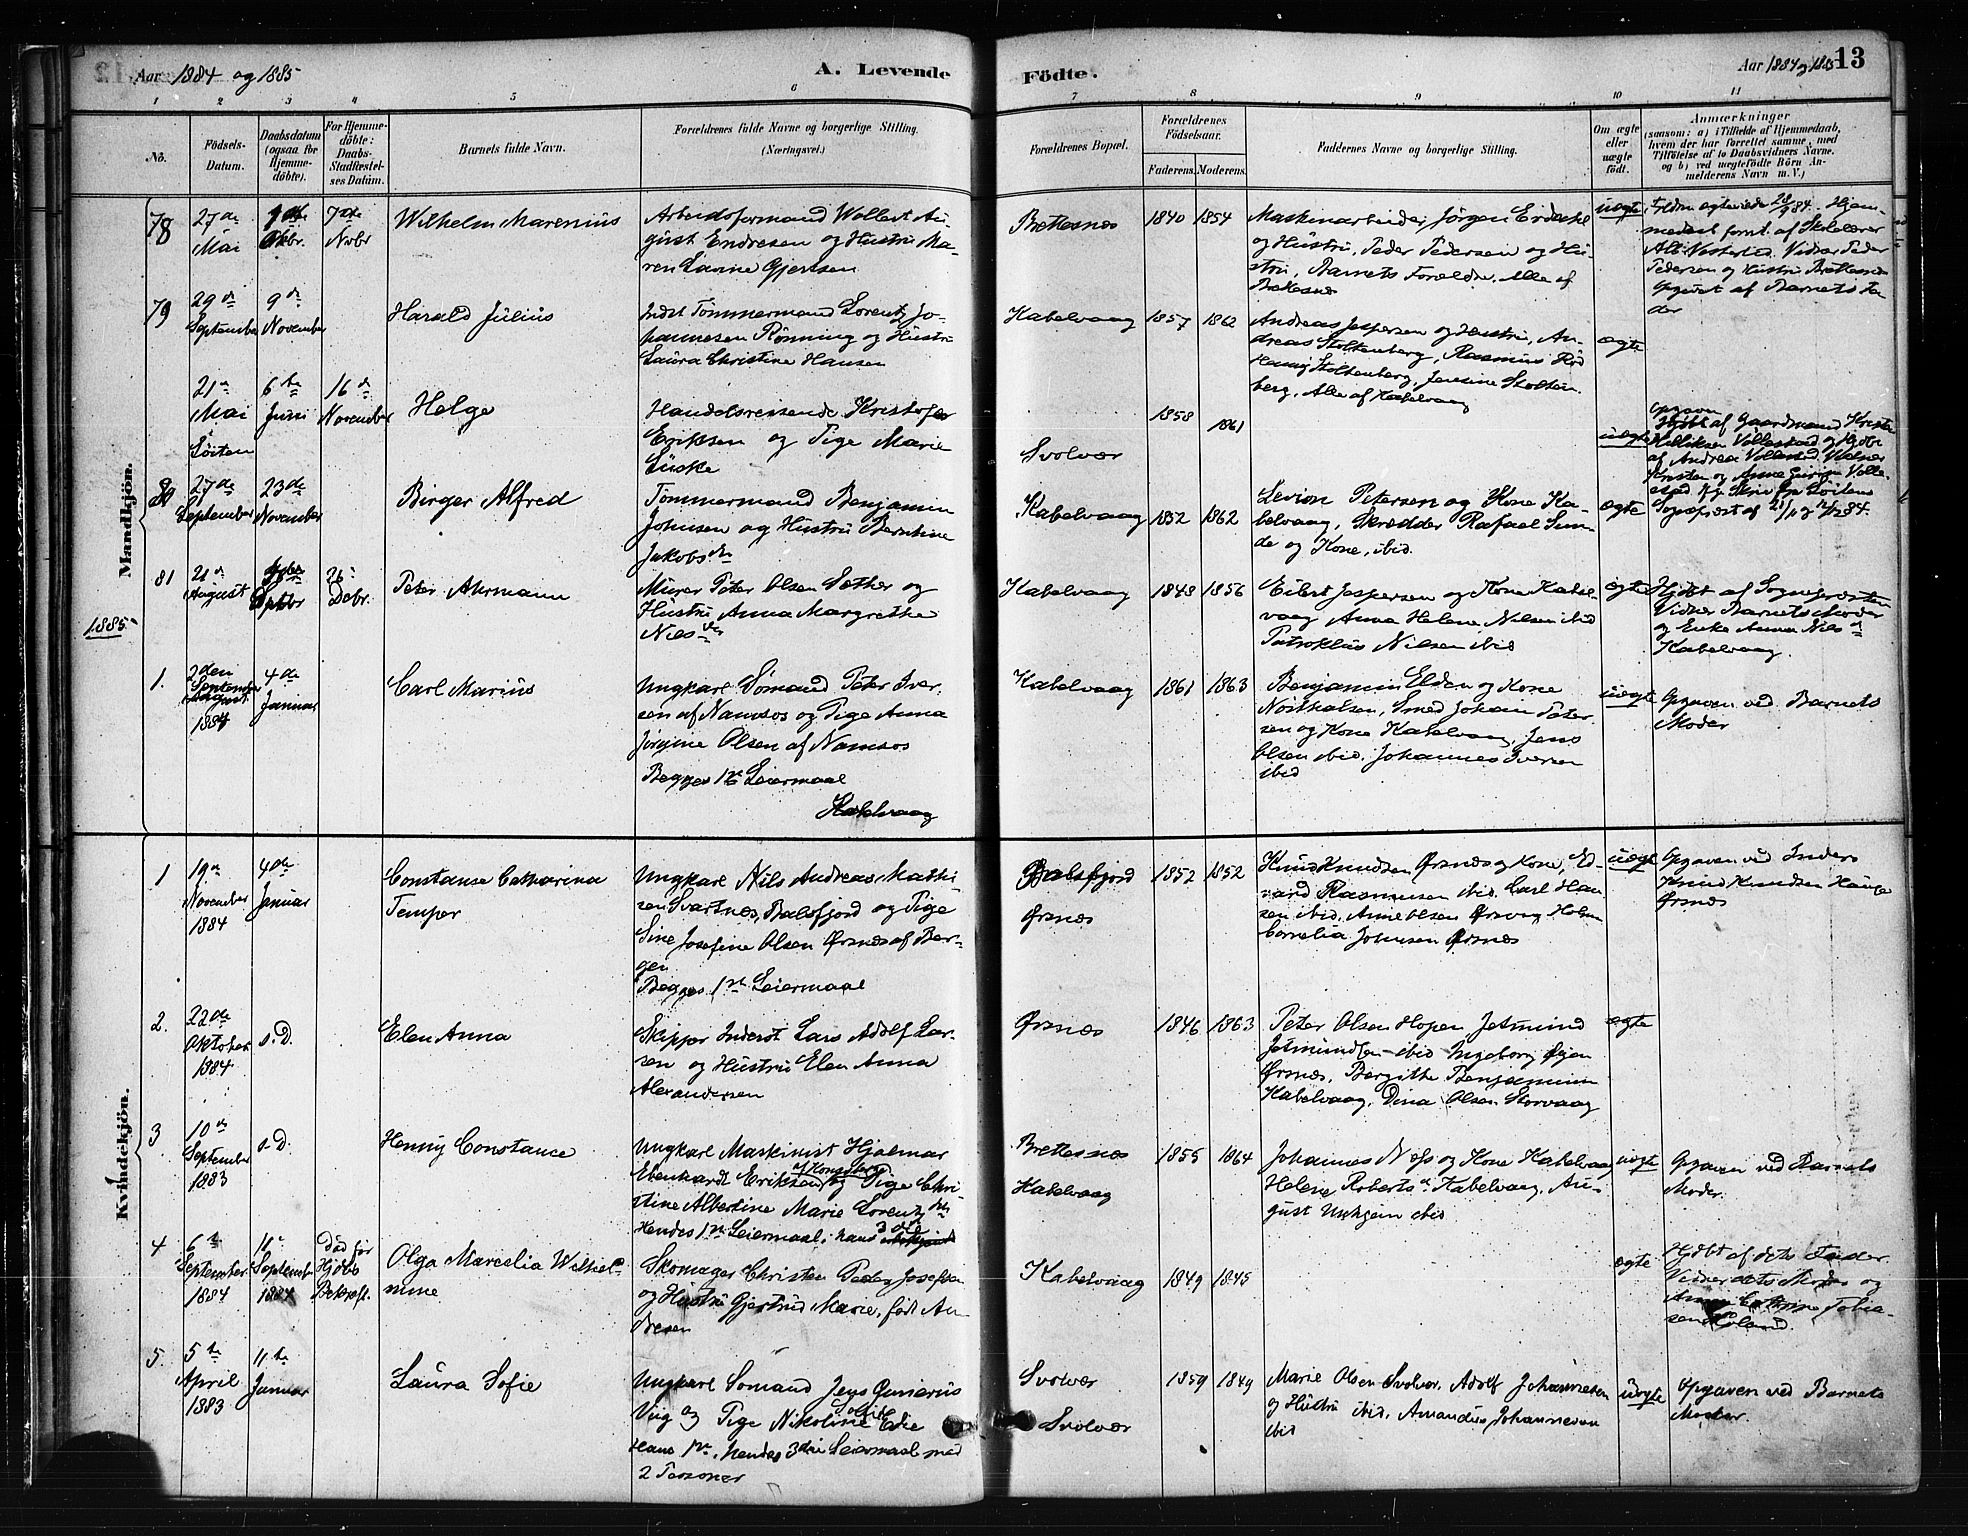 Aar 1884 og 1885
A. Levende
Födte.
Aar 1884 og 1885
13
1 2 3 4 5 6 7 8 9 10 11
No.
Födsels-
Datum.
Daabsdatum
(ogsaa for
Hjemme-
döbte).
For Hjemme-
döbte:
Daabs-
Stadfæstel-
ses Datum.
Barnets fulde Navn.
Forældrenes fulde Navne og borgerlige Stilling.
(Næringsvei.)
Forældrenes Bopæl.
Forældrenes
Födselsaar.
Faderens. Moderens.
Faddernes Navne og borgerlige Stilling.
Om ægte
eller
uægte
födt.
Anmærkninger
(saasom: a) i Tilfælde af Hjemmedaab,
hvem der har forrettet samme, med
Tilföielse af to Daabsvidners Navne.
og b) ved uægtefödte Börn An-
melderens Navn m. V.)
Mandkjön.
78
27de
Mai
Oktbr.
7de
Novbr
Wilhelm Marenius
Arbeidsformand Wollert Au-
gust Endresen og Hustru Ma-
ren Lavine Gjertsen
Brettesnæs
1840 1854
Maskinarbeider Jörgen
og Hustru, Peder Pedersen og Hu-
stru, Barnets Forældre. Alle af
Brettesnæs
uægte
af Skolelærer
Vidner Peder
Pedersen og Hustru Brettesnæs
Opgivet af Barnets Fa-
der
79
29de
September
9de
November
Harald Julius
Indst Tömmermand Lorentz Jo-
hannesen Rönning og Hustru
Laura Christine Hansen
Kabelvaag
1857 1862
Andreas Jespersen og Hustru, An-
dreas Stoltenberg, Rasmus
Henny Stoltenberg, Jensine Stolten
berg, Alle af Kabelvaag
ægte
21de
Mai
Löiten
6te
Juni
16de
November
Helge
Handelsreisende Kristofer
Eriksen og Pige Marie
Svolvær
1858 1861
uægte
af Gaardmand
af Andrea Vollestad Vidner
80
27de
September
23de
November
Birger Alfred
Tömmermand Benjamin
Johnsen og Hustru Berntine
Jakobsdtr
Kabelvaag
1852 1862
Levion Petersen og Kone Ka-
belvaag, Skrædder Rafael Sun-
de og Kone, ibid.
ægte
81
21de
August
Septbr
26
Debr.
Peter Ahrmann
Murer Peter Olsen Sæther og
Hustru Anna Margrethe
Nilsdtr
Kabelvaag
1848 1856
Eilert Jespersen og Kone Kabel-
vaag Anna Helene Nilsen ibid
Patroklus Nilsen ibid
ægte
Hjdbt af Sognepræsten
Vidner Barnets Moder
og Enke Anna Nilsdtr
Kabelvaag.
1885
1.
2den
September
1884
4de
Januar
Carl Marius
Ungkarl Sömand Peter Iver-
sen af Namsos og Pige Anna
Jörgine Olsen af Namsos
Begges 1ste Leiermaal
Kabelvaag
Kabelvaag
1861 1863
Benjamin Elden og Kone
Smed Johan Peter-
sen og Kone Kabelvaag, Jens
Olsen ibid. Johannes Iversen
ibid
uægte
Opgaven ved Barnets
Moder
Kvindekjön.
1
19de
November
1884
4de
Januar
Constanse Catharina
Temper
Ungkarl Nils Andreas Mathi-
sen Svartnes, Balsfjord og Pige
Sine Josefine Olsen Örsnæs af Ber-
gen
Begges 1ste Leiermaal
Balsfjord
Örsnæs
1852 1852
Knud Knudsen Örsnæs og Kone, Ed-
vard Rasmussen ibid. Carl Han-
sen ibid, Anne Olsen Örsvaag
Cornelia Johnsen Örsnæs
uægte
Opgaven ved Inders
Knud Knudsen
Örsnæs
2.
22de
Oktober
1884
s.D.
Elen Anna
Skipper Inderst Lars Adolf Lar-
sen og Hustru Elen Anna
Alexandersen
Örsnæs
1846 1863
Peter Olsen Hopen Jetmund
Jetmundsen ibid Ingeborg
Örsnæs, Bergithe Benjaminsen
Kabelvaag, Dina Olsen Storvaag
ægte
3
10de
September
1883
s.D.
Henny Constance
Ungkarl Maskinist Hjalmar
Ebenhardt Eriksen af Kongsberg og Pige Chri-
stine Albertine Marie Lorentzdtr
Hendes 1ste Leiermaal, hans 3die
Brettesnæs
Kabelvaag
1855 1864
Johannes Næss og Kone Kabelvaag
Helene Robertsdtr Kabelvaag, Au-
gust ibid
uægte
Opgaven ved Barnets
Moder.
4
6te
September
1884
11te
September
1884
Död för
Hjdbs
Bekræft.
Olga Marcelia Wilhel-
mine
Skomager Christen Peder Josefsen
og Hustru Gjertrud Marie, födt An-
dresen
Kabelvaag
1849 1845
ægte
Hjdbt af dets Fader
Vidner dets Moder og
Anne Cathrine Tobia-
sen
5.
5te
April
1883
11te
Januar
Laura Sofie
Ungkarl Sömand Jens
Vig og Pige Nikoline
Hans 1ste, hendes 3die Leiermaal med
2 Personer
Svolvær
Svolvær
1859 1849
Marie Olsen Svolvær, Adolf Johannesen
og Hustru ibid, Amandus Johannesen
ibid
uægte
Opgaven ved Barnets
Moder.